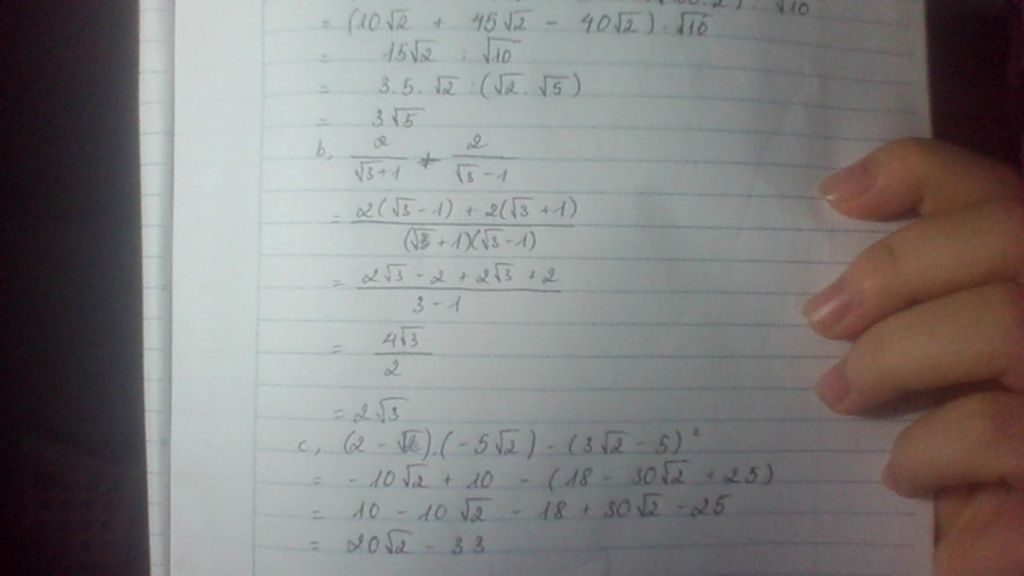 √10
= (10√2 + 45√2 - 40√2) : √10
= 15√2 : √10
= 3.5.√2 : (√2.√5)
= 3√5
b, 2/(√3+1) + 2/(√3-1)
= (2(√3-1) + 2(√3+1))/((√3+1)(√3-1))
= (2√3 - 2 + 2√3 + 2)/(3-1)
= 4√3/2
= 2√3
c, (2 - √2).(-5√2) - (3√2 - 5)²
= -10√2 + 10 - (18 - 30√2 + 25)
= 10 - 10√2 - 18 + 30√2 - 25
= 20√2 - 33